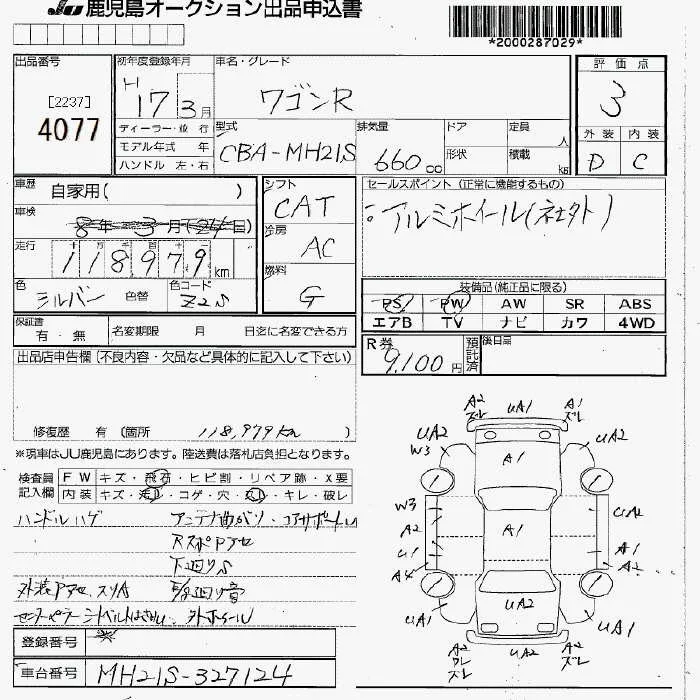 JU 鹿児島オークション出品申込書
*2000287029*
出品番号
[2237]
4077
初年度登録年月
H 17 3月
ディーラー・並 行
モデル年式 年
ハンドル 左・右
車名・グレード
ワゴンR
型式
CBA-MH21S
排気量
660cc
ドア
形状
定員
人
積載
kg
評 価 点
3
外 装 内 装
D C
車歴
自家用( )
車検
8年 3月(24日)
走行
十 万 千 百 十 一
118979 km
色
シルバー 色替
色コード
Z2S
シフト
CAT
冷房
AC
燃料
G
セールスポイント (正常に機能するもの)
:アルミホイール(社外)
装備品(純正品に限る)
PS PW AW SR ABS
エアB TV ナビ カワ 4WD
保証書
有・無
名変期限 月 日迄に名変できる方
R券
9,100円
預託済
後日品
出品店申告欄(不良内容・欠品など具体的に記入して下さい)
修復歴 有 (箇所 118,979km )
※現車はJU鹿児島にあります。陸送費は落札店負担となります。
検査員記入欄
FW キズ・飛石・ヒビ割・リペア跡・X要
内装 キズ・汚レ・コゲ・穴・スレ・キレ・破レ
ハンドルハゲ アンテナ曲がり・コアサポートU
下廻りS
登録番号
車台番号
MH21S-327124
A2 ズレ UA1 A1 ズレ
UA2 W3 A1 UA2
W3 A2 U1 A4 A1 UA2 A1 A2
UA1 UA2 UA1
A2 ワレ ズレ UA2 A2 ズレ